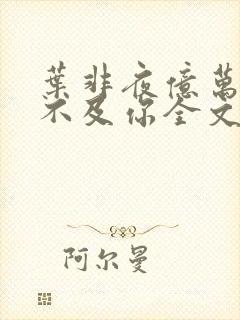 葉非夜億萬
不及你全文
阿尔曼